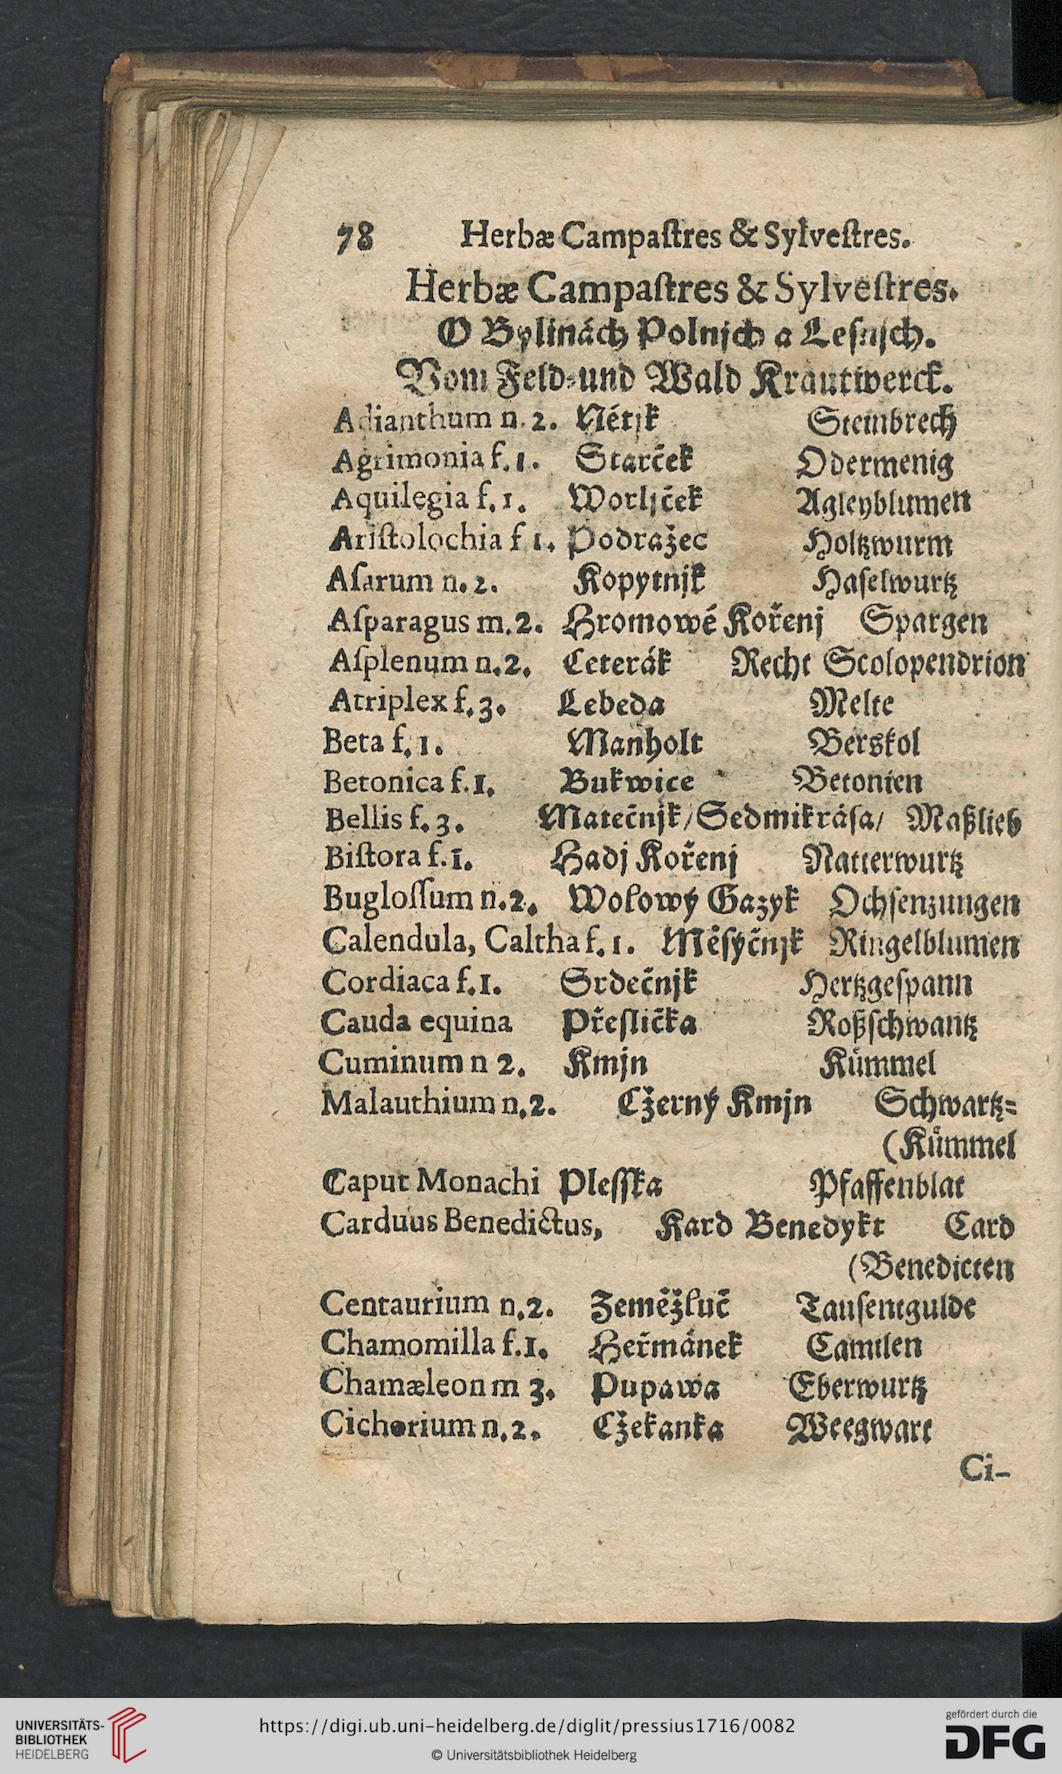 78 Herbæ Campaſtres & Sylveſtres.
Herbæ Campaſtres & Sylveſtres.
O Bylinách Polnjch a Leſnjch.
Vom Feld-und Wald Krautwerck.
Adianthum n. 2. Nétjk Steinbrech
Agrimonia f. 1. Starček Odermenig
Aquilegia f. 1. Worljček Agleyblumen
Ariſtolochia f 1. Podražec Holtzwurm
Aſarum n. 2. Kopytnjk Haſelwurtz
Aſparagus m. 2. Hromowé Kořenj Spargen
Aſplenum n. 2. Ceterák Recht Scolopendrion
Atriplex f. 3. Lebeda Melte
Beta f. 1. Manholt Berskol
Betonica f. 1. Bukwice Betonien
Bellis f. 3. Matečnjk/Sedmikráſa/ Maßlieb
Biſtora f. 1. Hadj Kořenj Natterwurtz
Bugloſſum n. 2. Wolowý Gazyk Ochſenzungen
Calendula, Caltha f. 1. Měſyčnjk Ringelblumen
Cordiaca f. 1. Srdečnjk Hertzgeſpann
Cauda equina Přeſlička Roßſchwantz
Cuminum n 2. Kmjn Kümmel
Malauthium n. 2. Cžerný Kmjn Schwartz=
(Kümmel
Caput Monachi Pleſſka Pfaffenblat
Carduus Benedictus, Kard Benedykt Card
(Benedicten
Centaurium n. 2. Zeměžluč Tauſentgulde
Chamomilla f. 1. Heřmánek Camilen
Chamæleon m 3. Pupawa Eberwurtz
Cichorium n. 2. Cžekanka Weegwart
Ci-
UNIVERSITÄTS-
BIBLIOTHEK
HEIDELBERG
https://digi.ub.uni-heidelberg.de/diglit/pressius1716/0082
© Universitätsbibliothek Heidelberg
gefördert durch die
DFG